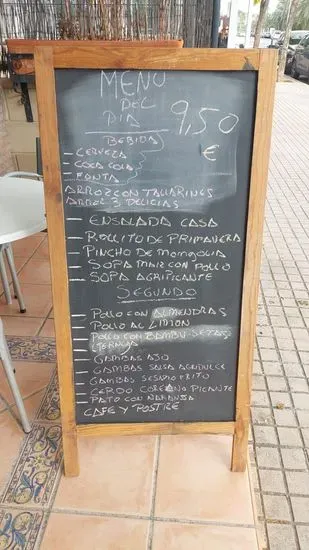 MENU
DEL
DIA
9,50
€
BEBIDA
- CERVEZA
- COCA COLA
- FANTA
ARROZ CON TALLARINES
ARROZ 3 DELICIAS
- ENSALADA CASA
- ROLLITO DE PRIMAVERA
- PINCHO DE MONGOLIA
- SOPA MAIZ CON POLLO
- SOPA AGRIPICANTE
SEGUNDO
- POLLO CON ALMENDRAS
- POLLO AL LIMON
- POLLO CON BAMBU SETAS
- TERNERA
- GAMBAS AJO
- GAMBAS SALSA AGRIDULCE
- GAMBAS SESAMO FRITO
- CERDO COREANO PICANTE
- PATO CON NARANJA
CAFE Y POSTRE